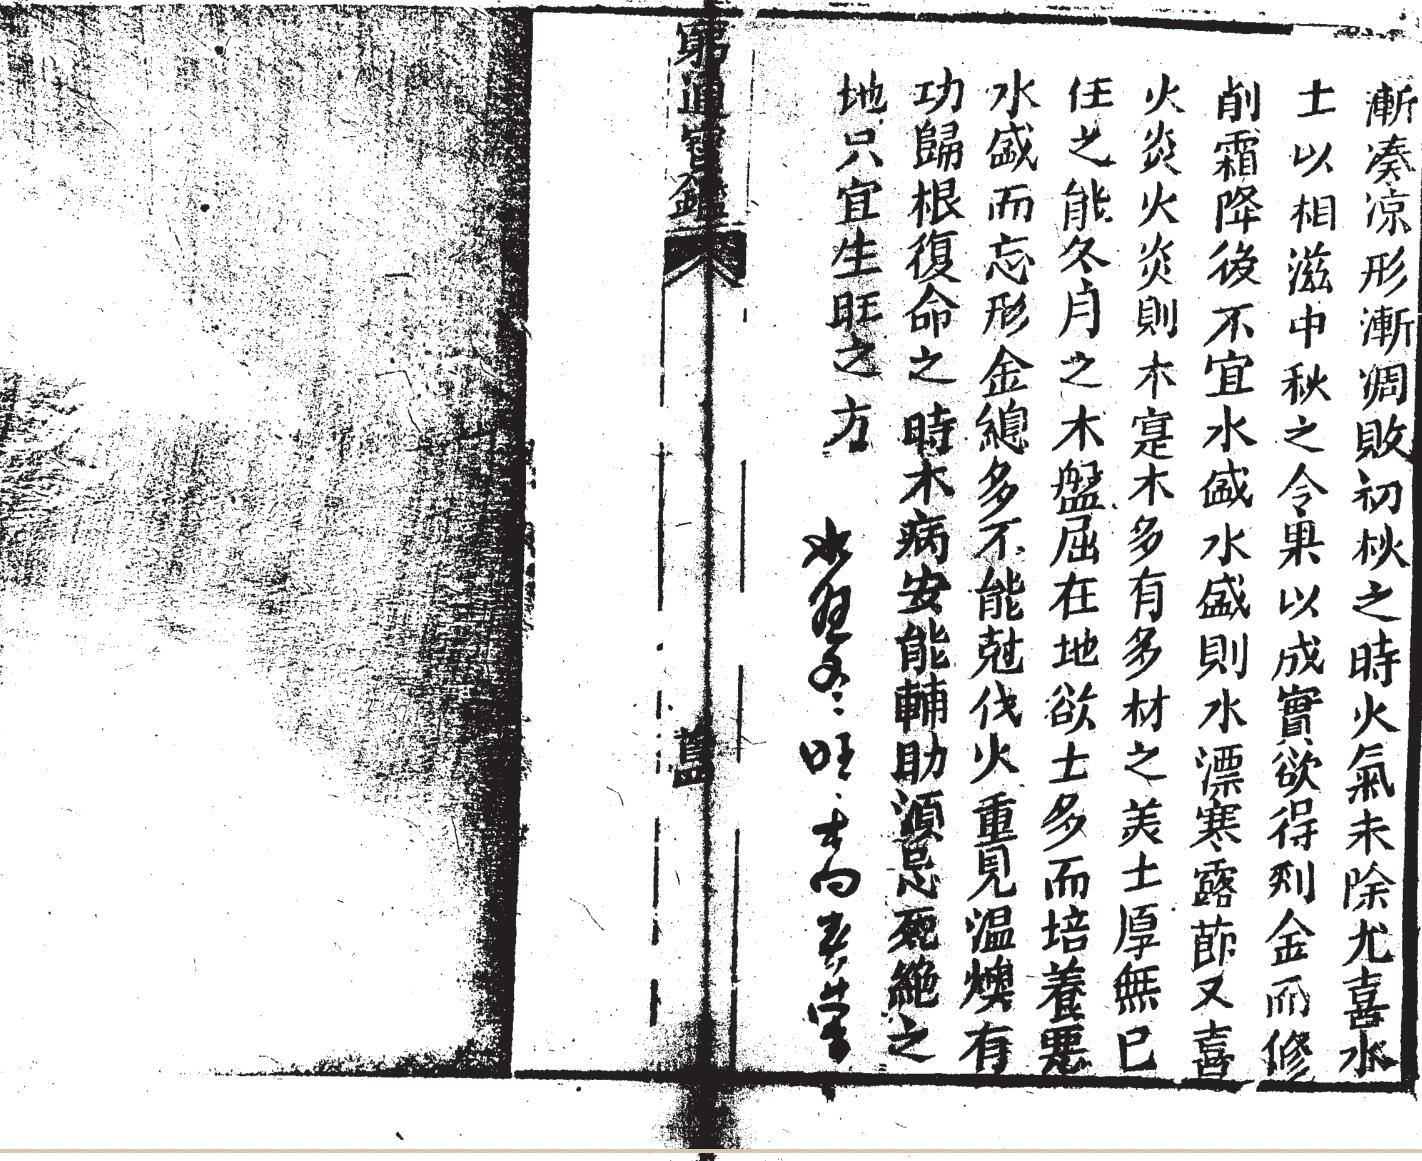 漸凑凉形漸凋敗初秋之時火氣未除尤喜水
土以相滋中秋之令果以成實欲得剛金而修
削霜降後不宜水盛水盛則水漂寒露節又喜
火炎火炎則木寔木多有多材之美土厚無己
任之能冬月之木盤屈在地欲土多而培養惡
水盛而忘形金總多不能尅伐火重見温燠有
功歸根復命之時木病安能輔助湏忌死絶之
地只宜生旺之方
旺
窮通寶鑑